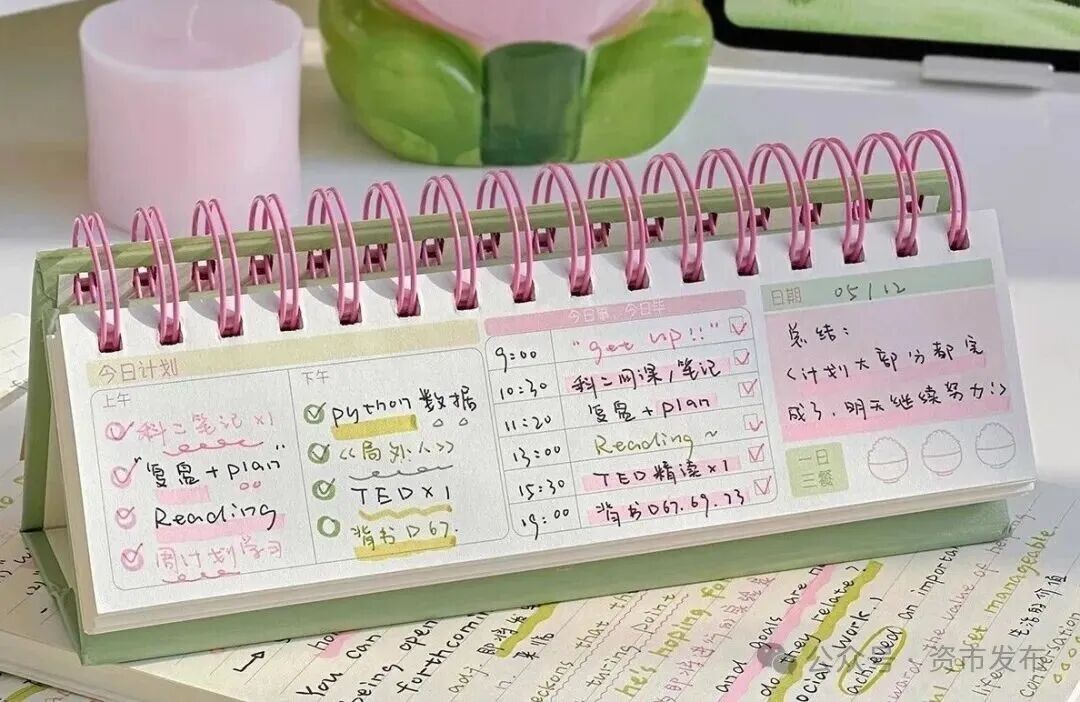 今日计划
上午
科二笔记×1
"复盘+plan"
Reading
周计划学习
下午
python数据
《局外人》
TED×1
背书D67.
今日事,今日毕
9:00 "get up!!"
10:30 科二网课/笔记
11:20 复盘+plan
13:00 Reading~
15:30 TED精读×1
19:00 背书D67.69.73
日期 05/12
总结:
<计划大部分都完
成了,明天继续努力!>
一日
三餐
You can
being open
forthcoming
he's hoping for
and goals are
do they relate?
social work.
achieved an important
manageable.
生活的价值
公众号·资市发布